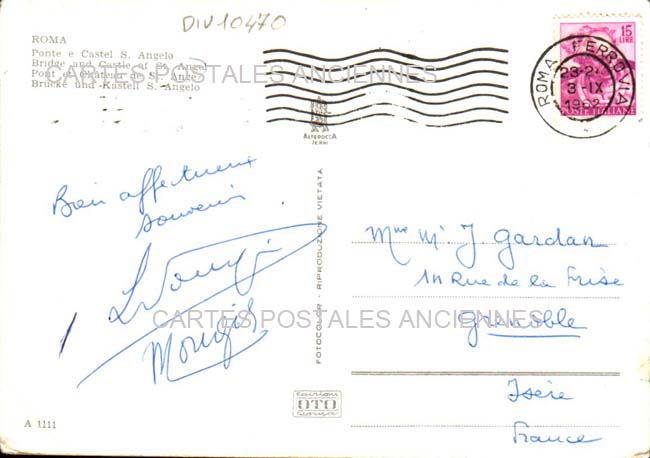 DIV10470
ROMA
Ponte e Castel S. Angelo
Bridge and Castle of St. Angel
Pont et Château de St. Ange
Brücke und Kastell S. Angelo
CARTES POSTALES ANCIENNES
15
LIRE
POSTE ITALIANE
ROMA FERROVIA
3 IX
1962
ALTEROCCA
TERNI
Bien affectueux
souvenir
Mougis
FOTOCOLOR - RIPRODUZIONE VIETATA
Mme M. J. Gardan
1N Rue de la Frise
CARTES POSTALES ANCIENNES
Grenoble
Isère
France
Edizioni
OTO
Roma
A 1111